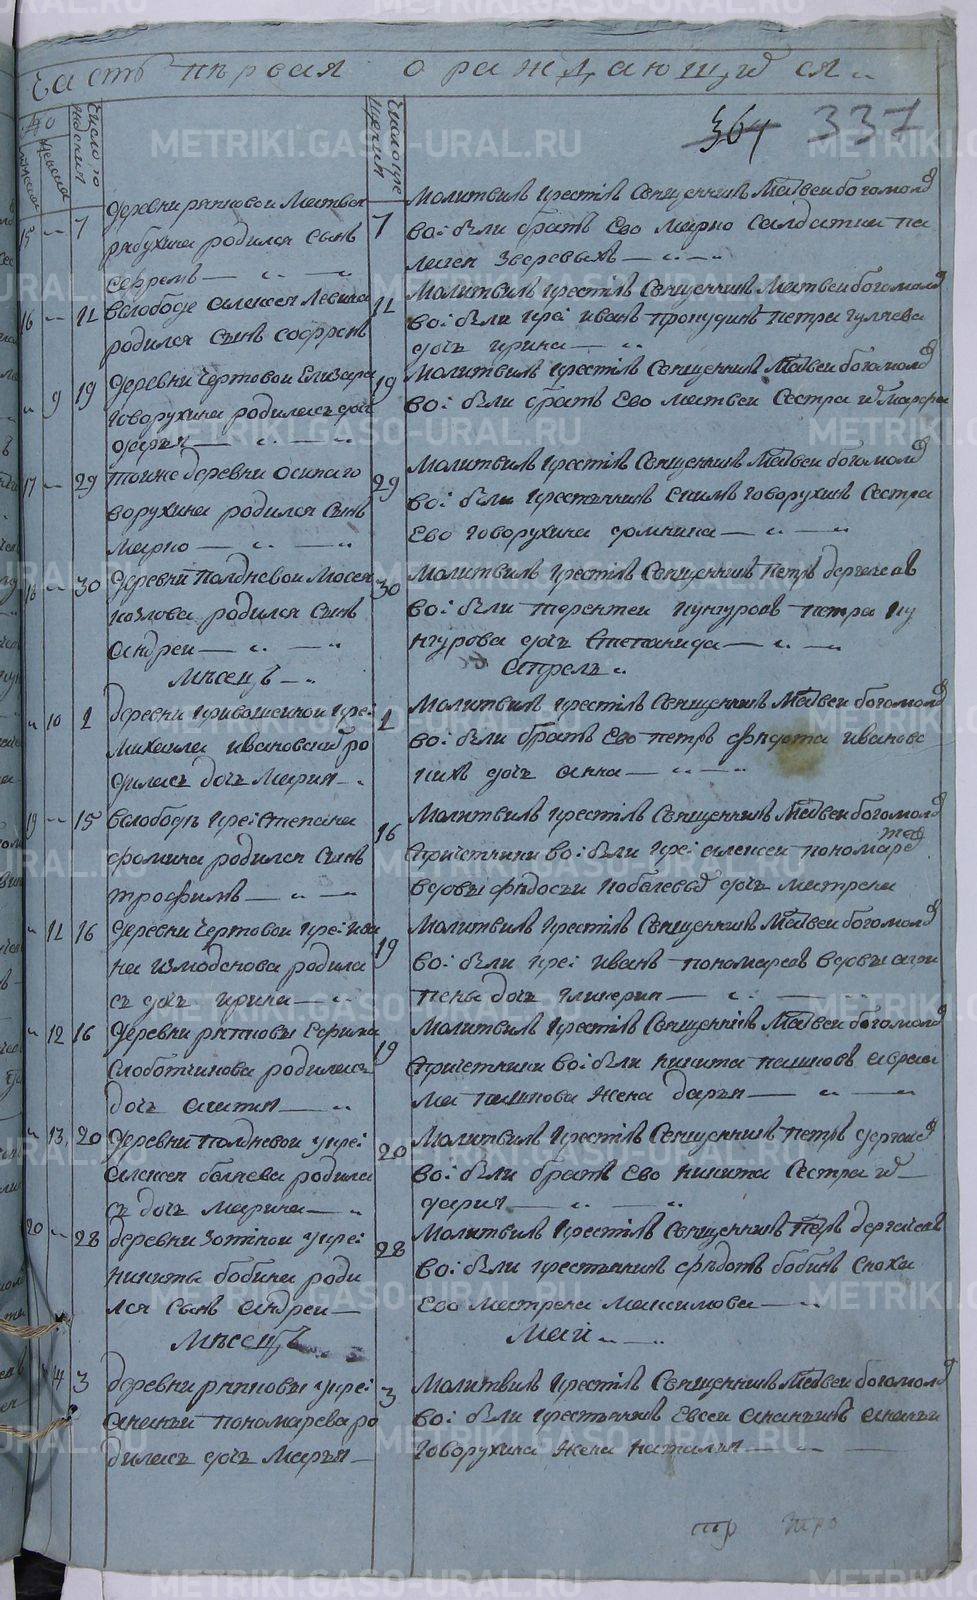 Часть первая о раждающихся
364 337
число рождения
число крещения
деревни рятковои Матвея
рябухина родился сынъ
15 7
Молитвилъ крестилъ священникъ Матвеи богомоло
7 во: были братъ Ево марко салдатки па
лагея Зверевыхъ
16 11 вслободе алексея Левина
родился сынъ софронъ
11 Молитвилъ крестилъ священникъ Матвеи богомоло
во: были кре: иванъ петра гуляева
дочь ирина
9 19 деревни чертовои Елизара
говорухина родилась дочь
дарья
19 Молитвилъ крестилъ священникъ Матвеи богомоло
во: были братъ Ево матвеи сестра марфа
17 29 тоиже деревни осипа го
ворухина родился сынъ
марко
29 Молитвилъ крестилъ священникъ Матвеи богомоло
во: были крестьянинъ екимъ говорухинъ сестра
Ево говорухина домнина
30 деревни полдневои Мосея
козлова родился сынъ
андреи
30 Молитвилъ крестилъ священникъ петръ дергачевъ
во: были терентеи кунгуровъ петра ку
нгурова дочь степанида
Месецъ апрель
10 1 деревни кривошеинои кре:
михаила ивановскихъ ро
дилась дочь Мария
1 Молитвилъ крестилъ священникъ Матвеи богомоло
во: были братъ Ево петръ федота ивановс
кихъ дочь анна
19 15 вслободе кре: степана
фомина родился сынъ
трофимъ
16 Молитвилъ крестилъ священникъ Матвеи богомоло
спричтники во: были кре: алексеи пономаре
вдовы федосьи кобалевы дочь матрена
11 16 деревни чертовои кре: ива
на измоденова родила
сь дочь ирина
19 Молитвилъ крестилъ священникъ Матвеи богомоло
во: были кре: иванъ пономаревъ вдовы агри
пены дочь гликерия
12 16 деревни рятковы Ефима
слоботчикова родилась
дочь
19 Молитвилъ крестилъ священникъ Матвеи богомоло
спричтники во: были никита пашковъ авраа
ма пашкова жена дарья
13 20 деревни полдневои кре:
алексея беляева родила
сь дочь марина
20 Молитвилъ крестилъ священникъ петръ дергаче
во: были братъ Ево никита сестра
дария
20 28 деревни зотинои кре:
никиты бобина роди
лся сынъ андреи
28 Молитвилъ крестилъ священникъ петръ дергачевъ
во: были крестьянинъ федотъ бобинъ сноха
Ево матрена максимова
Месецъ Маи
14 3 деревни рятковы кре:
ананьи пономарева ро
дилась дочь Марья
3 Молитвилъ крестилъ священникъ Матвеи богомоло
во: были крестьянинъ Евсеи ананьинъ ананьи
говорухина жена наталья
METRIKI.GASO-URAL.RU